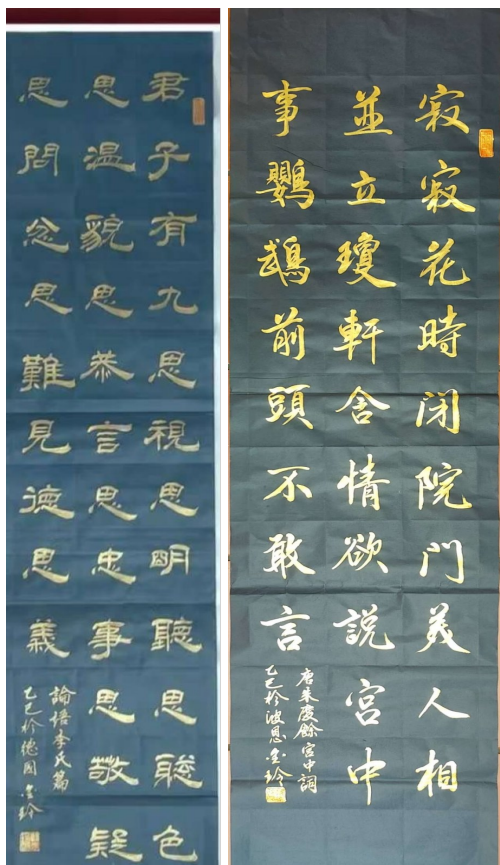 君子有九思視思明聽思聰色
思溫貌思恭言思忠事思敬疑
思問忿思難見德思義
論語季氏篇
乙巳於德國金玲
寂寂花時閉院門美人相
並立瓊軒含情欲說宮中
事鸚鵡前頭不敢言
唐朱慶餘宮中詞
乙巳於波恩金玲